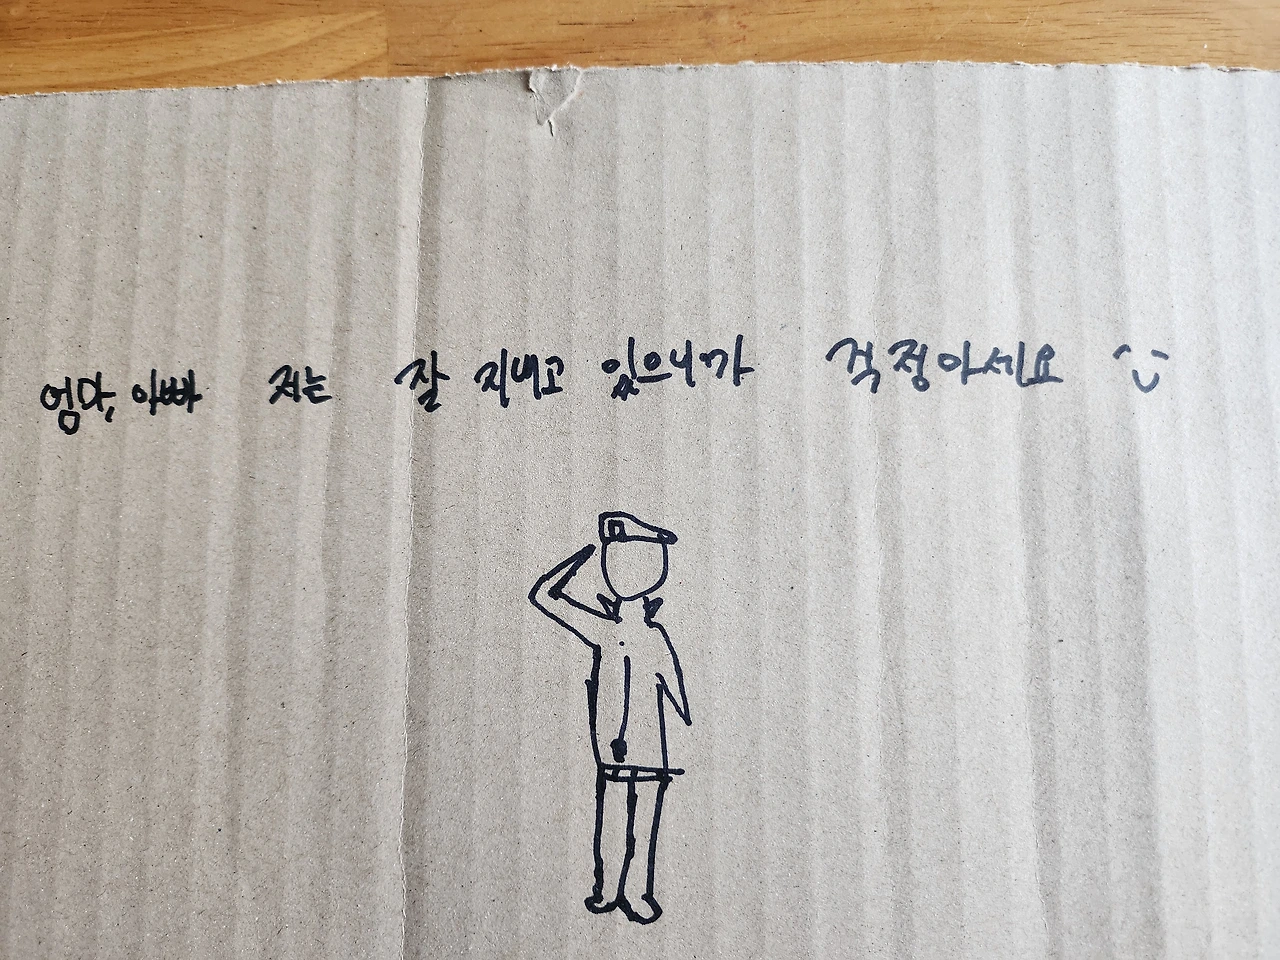 엄마, 아빠 저는 잘 지내고 있으니까 걱정마세요